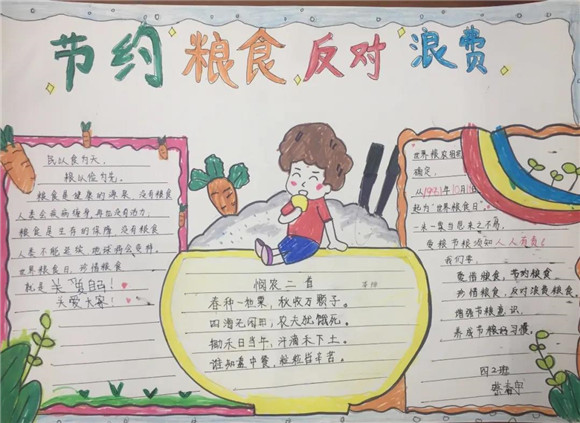 节约 粮食 反对 浪费
民以食为天，
粮以俭为先。
粮食是健康的源泉，没有粮食
人类会疾病缠身，再也没有活力，
粮食是生命的保障，没有粮食
人类不能延续，地球病没意料。
世界粮食日，珍惜粮食
就是关爱自己！
关爱大家！
悯农二首
李绅
春种一粒粟，秋收万颗子。
四海无闲田，农夫犹饿死。
锄禾日当午，汗滴禾下土。
谁知盘中餐，粒粒皆辛苦。
世界粮农组织
确定，
从1981年10月16
起为“世界粮食日”。
一米一粟当思来之不易，
爱粮节粮须知人人有责！
我们要，
爱惜粮食，节约粮食
珍惜粮食，反对浪费粮食
增强节粮意识，
养成节粮的习惯。
四2班